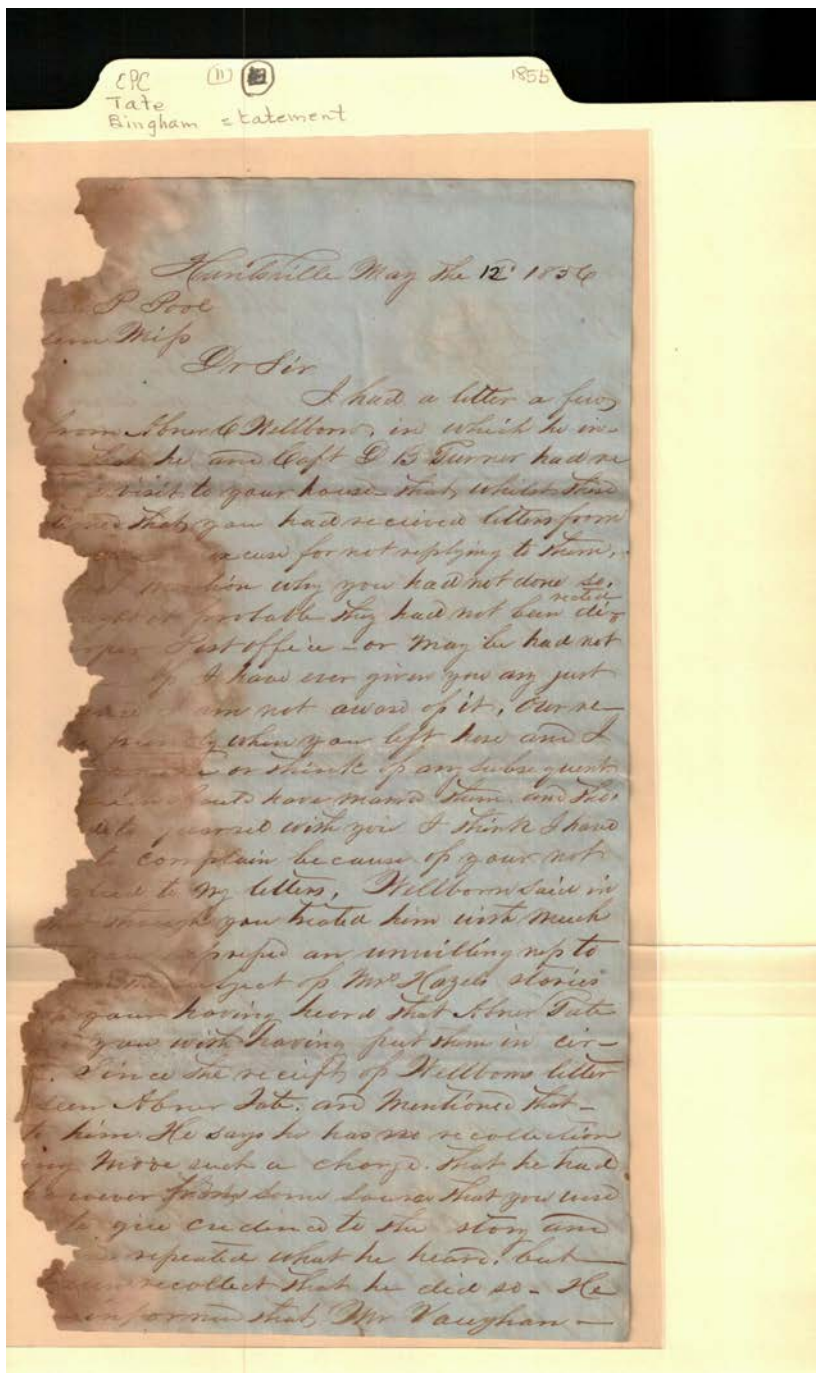 CPC (11) 1855
Tate
Bingham statement
Huntsville May the 12 1856
P Pool
Miss
Dr Sir
I had a letter a few
from Abner C Wellborn, in which he in-
that he and Capt D B Turner had re
visit to your house that, whilst there
that you had recieved letters from
excuse for not replying to them,
mention why you had not done so,
or probable they had not been di-
rected
Post office - or may be had not
If I have ever given you any just
I am not aware of it, Our re-
friendly when you left here and I
or think of any subsequent
have marred them and tho'
to quarrel with you I think I have
to complain because of your not
to my letters, Wellborn said in
though you treated him with much
an unwillingness to
subject of Mrs Hazels stories
your having heard that Abner Tate
you with having put them in cir-
Since the reciept of Wellborns letter
seen Abner Tate, and mentioned that
to him. He says he has no recollection
such a charge. That he had
from some source that you were
to give credence to the story and
repeated what he heard, but
recollect that he did so - He
informed that Mr Vaughan -